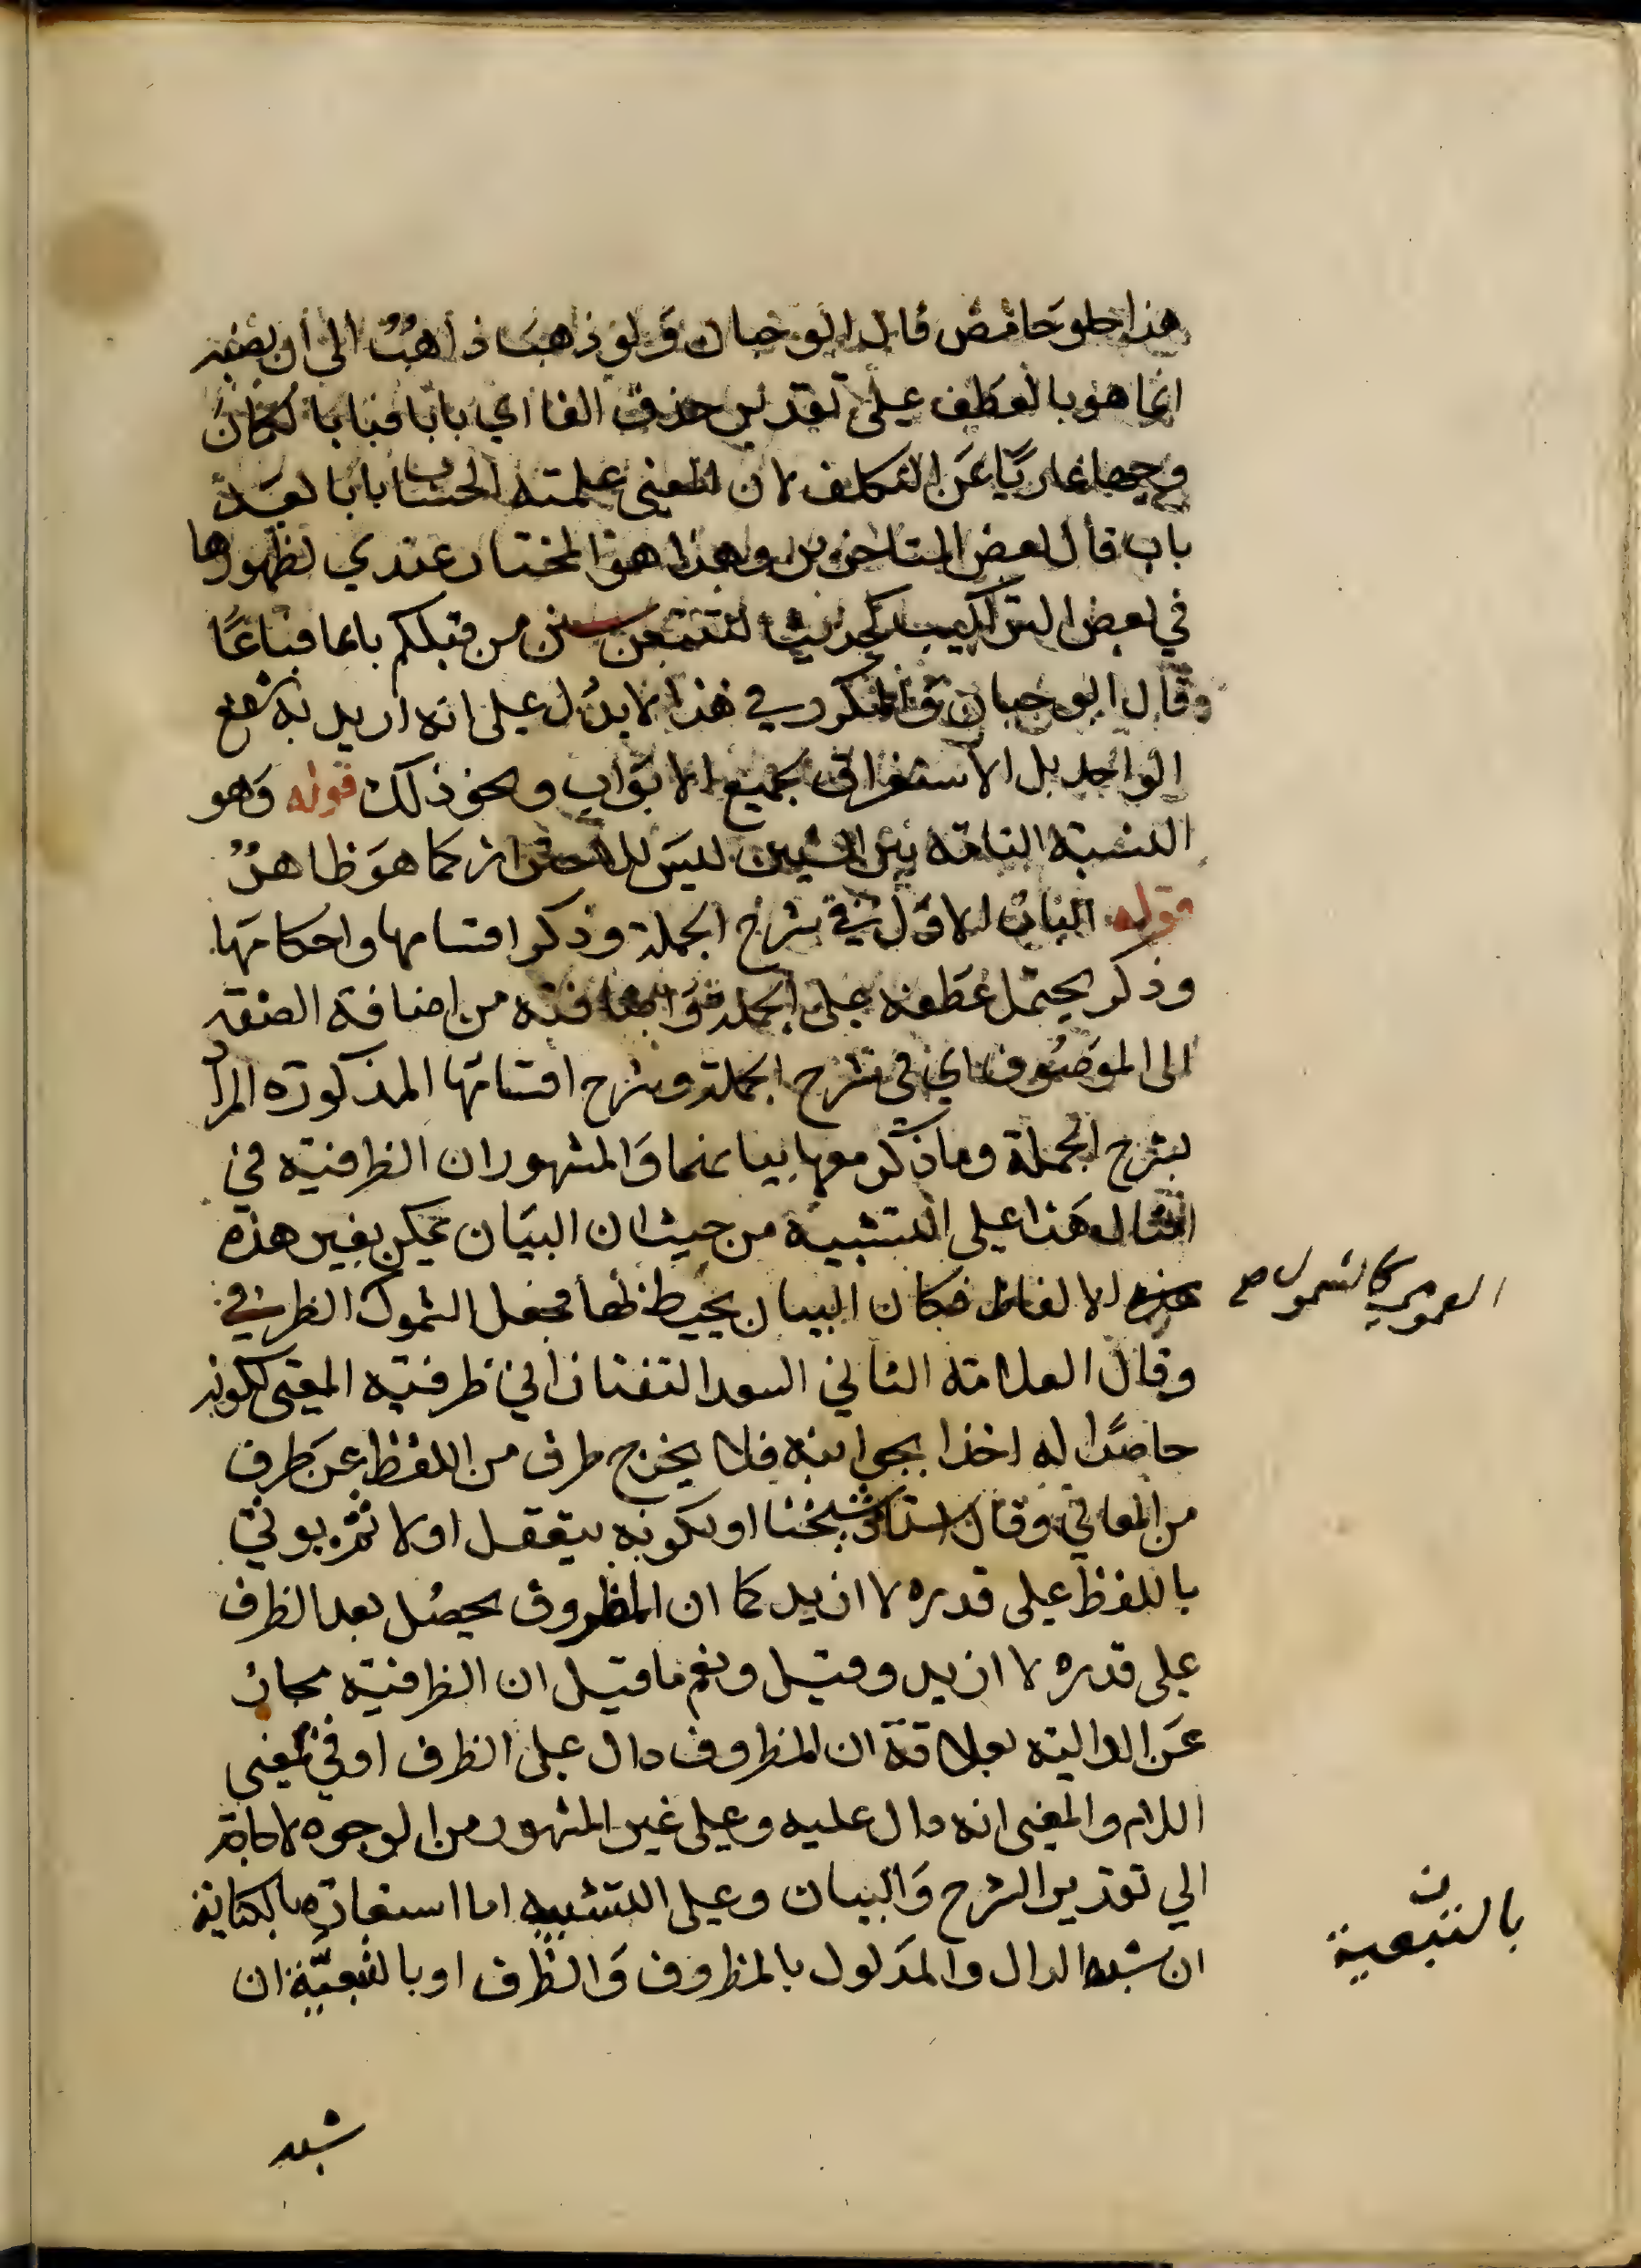 هذا حلو حامض قال ابو حيان ولو ذهب ذاهب الى ان نصبه
انما هو بالعطف على تقدير حذف الفا اي بابا فبابا لكان
وجها عاريا عن التكلف لان المعنى علمته الحساب بابا بعد
باب قال بعض المتاخرين وهذا هو المختار عندي لظهورها
في بعض التراكيب كحديث لتتبعن سنن من قبلكم باعا فباعا
وقال ابو حيان والمكرر في هذا لا يدل على انه اريد به شفع
الواحد بل الاستغراق بجميع الابواب ونحو ذلك قوله وهو
النسبة التامة بين الشيين ليس للاحتراز كما هو ظاهر
قوله الباب الاول في شرح الجملة وذكر اقسامها واحكامها
وذكر يحتمل عطفه على الجملة واضافته من اضافة الصفة
الى الموصوف اي في شرح الجملة وشرح اقسامها المذكورة المراد
بشرح الجملة وما ذكر معها بيانهما والمشهور ان الظرفية في
امثال هذا على التشبيه من حيث ان البيان يمكن بغير هذه
هذه الالفاظ فكان البيان يحيط بها فجعل الشمول الظرفي
العمومي كالشمول صح
وقال العلامة الثاني السعد التفتازاني ظرفية المعنى لكونه
حاصرا له اخذا بجوانبه فلا يخرج طرف من اللفظ عن طرف
من المعاني وقال استاذ شيخنا او لكونه يتعقل اولا ثم يوتى
باللفظ على قدره لا ازيد كما ان المظروف يحصل بعد الظرف
على قدره لا ازيد وقيل ونعم ما قيل ان الظرفية مجاز
عن الدالية بعلاقة ان المظروف دال على الظرف او في بمعنى
اللام والمعنى انه دال عليه وعلى غير المشهور من الوجوه لا حاجة
الي تقدير الشرح والبيان وعلى التشبيه اما استعارة بالكناية
ان شبه الدال والمدلول بالمظروف والظرف او بالتبعية ان
ن
بالتبعية
شبه